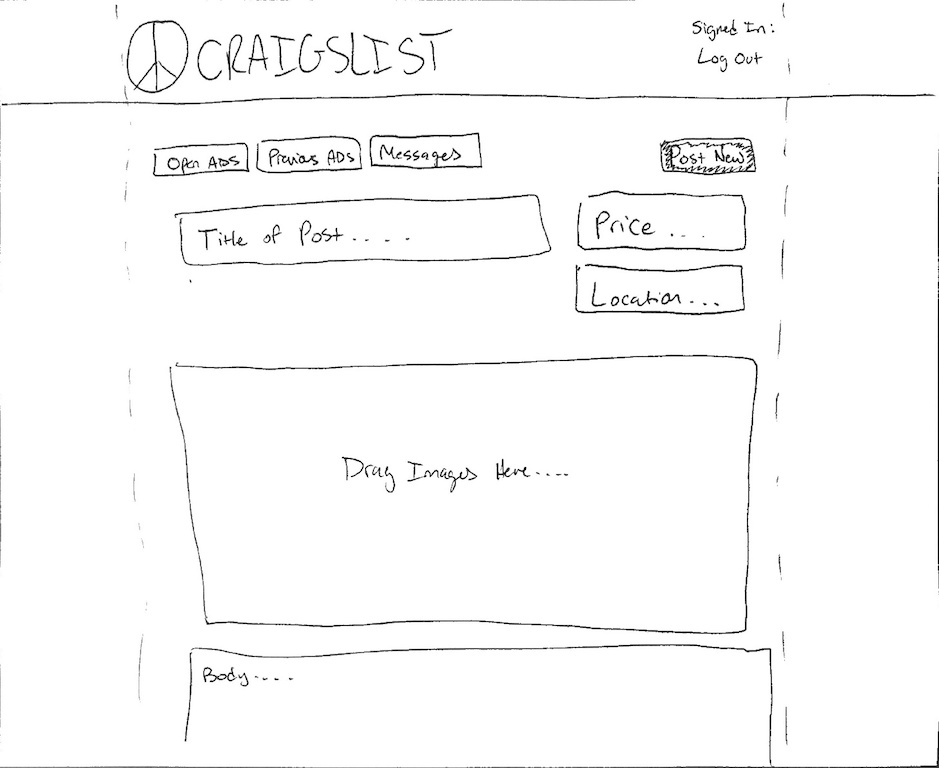 CRAIGSLIST
Signed In:
Log Out
Open ADS
Previous ADs
Messages
Post New
Title of Post....
Price ...
Location...
Drag Images Here....
Body....